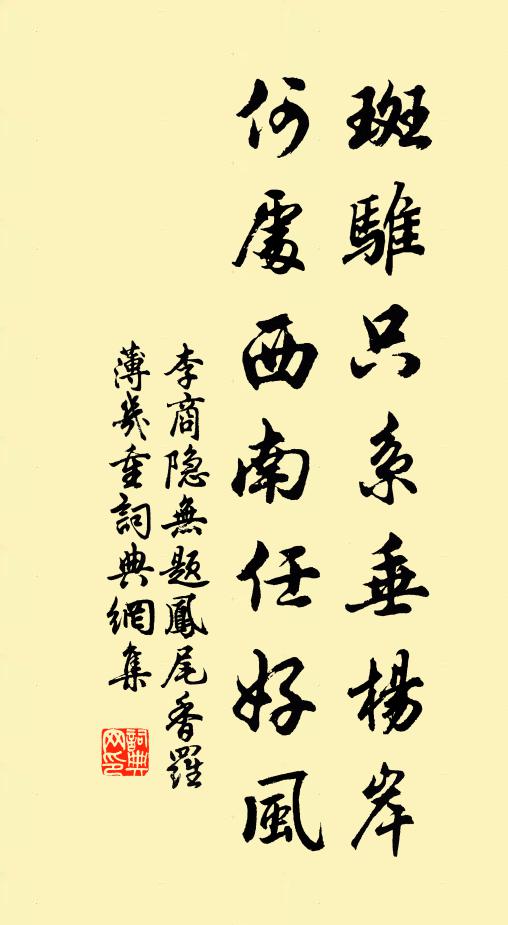 斑騅只系垂楊岸
何處西南任好風
李商隐無題鳳尾香羅
薄幾重詞典網集
詞典網印